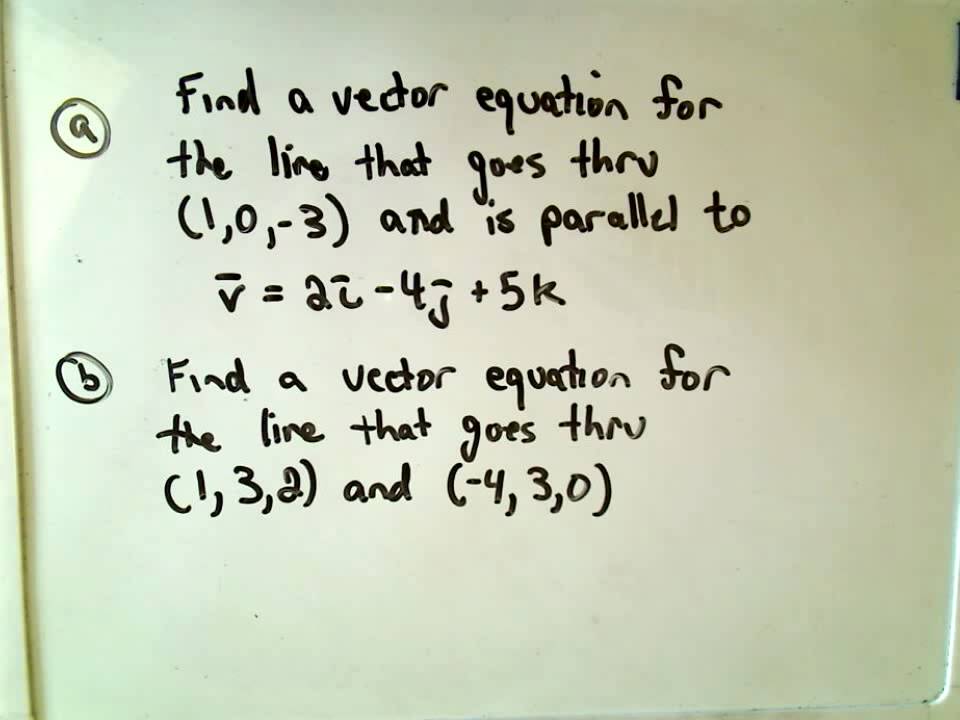 (a) Find a vector equation for
the line that goes thru
(1,0,-3) and is parallel to
v̄ = 2ī - 4j̄ + 5k
(b) Find a vector equation for
the line that goes thru
(1,3,2) and (-4,3,0)